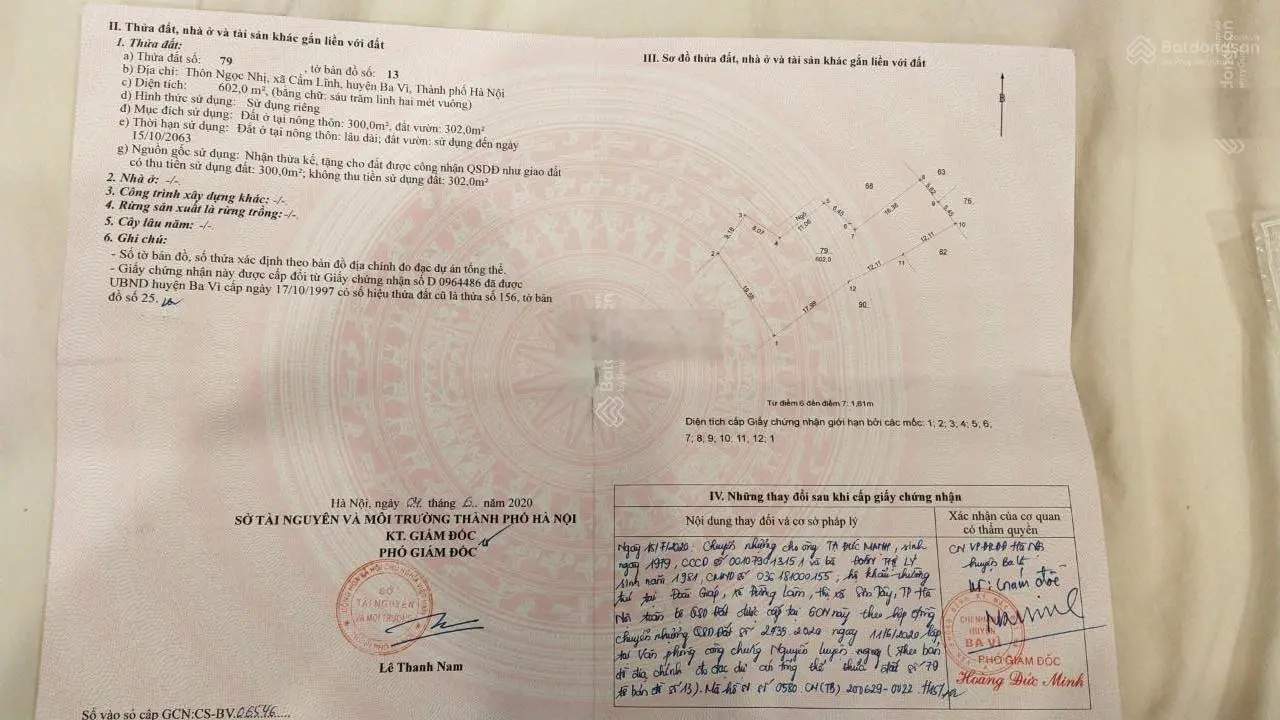 II. Thửa đất, nhà ở và tài sản khác gắn liền với đất
1. Thửa đất:
a) Thửa đất số: 79 , tờ bản đồ số: 13
b) Địa chỉ: Thôn Ngọc Nhị, xã Cẩm Lĩnh, huyện Ba Vì, Thành phố Hà Nội
c) Diện tích: 602,0 m², (bằng chữ: sáu trăm linh hai mét vuông)
d) Hình thức sử dụng: Sử dụng riêng
đ) Mục đích sử dụng: Đất ở tại nông thôn: 300,0m²; đất vườn: 302,0m²
e) Thời hạn sử dụng: Đất ở tại nông thôn: lâu dài; đất vườn: sử dụng đến ngày
15/10/2063
g) Nguồn gốc sử dụng: Nhận thừa kế, tặng cho đất được công nhận QSDĐ như giao đất
có thu tiền sử dụng đất: 300,0m²; không thu tiền sử dụng đất: 302,0m²
2. Nhà ở: -/-.
3. Công trình xây dựng khác: -/-.
4. Rừng sản xuất là rừng trồng:-/-.
5. Cây lâu năm: -/-.
6. Ghi chú:
- Số tờ bản đồ, số thửa xác định theo bản đồ địa chính đo đạc dự án tổng thể.
- Giấy chứng nhận này được cấp đổi từ Giấy chứng nhận số D 0964486 đã được
UBND huyện Ba Vì cấp ngày 17/10/1997 có số hiệu thửa đất cũ là thửa số 156, tờ bản
đồ số 25.
Hà Nội, ngày 04 tháng 6 năm 2020
SỞ TÀI NGUYÊN VÀ MÔI TRƯỜNG THÀNH PHỐ HÀ NỘI
KT. GIÁM ĐỐC
PHÓ GIÁM ĐỐC
SỞ
TÀI NGUYÊN
VÀ MÔI TRƯỜNG
Lê Thanh Nam
Số vào sổ cấp GCN:CS-BV.06546....
III. Sơ đồ thửa đất, nhà ở và tài sản khác gắn liền với đất
B
68
63
76
8
5,62
9
5,46
10
16,36
3
9,18
8,07
4
Ngõ
11,06
5
6,45
6
7
2
79
602,0
12,11
11
62
12,11
12
19,58
17,99
90
1
Từ điểm 6 đến điểm 7: 1,61m
Diện tích cấp Giấy chứng nhận giới hạn bởi các mốc: 1; 2; 3; 4; 5; 6;
7; 8; 9; 10; 11; 12; 1
IV. Những thay đổi sau khi cấp giấy chứng nhận
Nội dung thay đổi và cơ sở pháp lý
Xác nhận của cơ quan
có thẩm quyền
Ngày 15/7/2020: Chuyển nhượng cho ông TẠ ĐỨC MẠNH, sinh
ngày 1979, CCCD số 001079013151 và bà ĐOÀN THỊ LÝ
sinh năm 1981, CMND số 036181000155, hộ khẩu thường
trú tại Đoài Giáp, xã Đường Lâm, thị xã Sơn Tây, TP Hà
Nội toàn bộ QSD Đất được cấp tại GCN này theo hợp đồng
chuyển nhượng QSD Đất số 2735.2020 ngày 11/6/2020 lập
tại Văn phòng công chứng Nguyễn (theo bản
đồ địa chính đo đạc dự án tổng thể thửa đất số 79
tờ bản đồ số 13). Mã hồ sơ số 0580.CN(TB) 200629-0022
CN VPĐKĐĐ Hà Nội
huyện Ba Vì
Giám đốc
CHI NHÁNH
HUYỆN
BA VÌ
PHÓ GIÁM ĐỐC
Hoàng Đức Minh
Batdongsan
by PropertyGuru